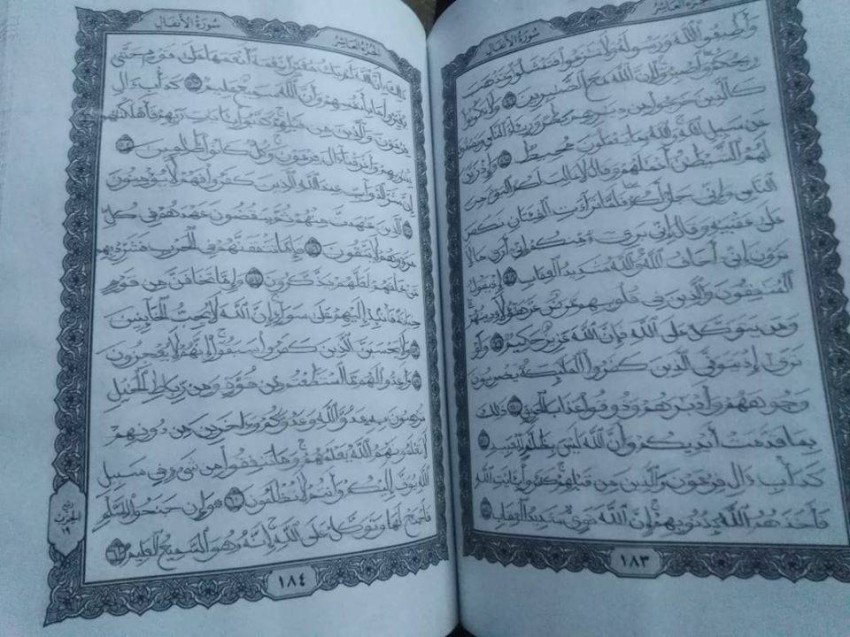 الجزء العاشر
سورة الأنفال
وَأَطِيعُوا۟ ٱللَّهَ وَرَسُولَهُۥ وَلَا تَنَـٰزَعُوا۟ فَتَفْشَلُوا۟ وَتَذْهَبَ
رِيحُكُمْ ۖ وَٱصْبِرُوٓا۟ ۚ إِنَّ ٱللَّهَ مَعَ ٱلصَّـٰبِرِينَ ٤٦ وَلَا تَكُونُوا۟
كَٱلَّذِينَ خَرَجُوا۟ مِن دِيَـٰرِهِم بَطَرًا وَرِئَآءَ ٱلنَّاسِ وَيَصُدُّونَ
عَن سَبِيلِ ٱللَّهِ ۚ وَٱللَّهُ بِمَا يَعْمَلُونَ مُحِيطٌ ٤٧ وَإِذْ زَيَّنَ
لَهُمُ ٱلشَّيْطَـٰنُ أَعْمَـٰلَهُمْ وَقَالَ لَا غَالِبَ لَكُمُ ٱلْيَوْمَ مِنَ
ٱلنَّاسِ وَإِنِّى جَارٌ لَّكُمْ ۖ فَلَمَّا تَرَآءَتِ ٱلْفِئَتَانِ نَكَصَ
عَلَىٰ عَقِبَيْهِ وَقَالَ إِنِّى بَرِىٓءٌ مِّنكُمْ إِنِّىٓ أَرَىٰ مَا لَا
تَرَوْنَ إِنِّىٓ أَخَافُ ٱللَّهَ ۚ وَٱللَّهُ شَدِيدُ ٱلْعِقَابِ ٤٨ إِذْ يَقُولُ
ٱلْمُنَـٰفِقُونَ وَٱلَّذِينَ فِى قُلُوبِهِم مَّرَضٌ غَرَّ هَـٰٓؤُلَآءِ دِينُهُمْ ۗ
وَمَن يَتَوَكَّلْ عَلَى ٱللَّهِ فَإِنَّ ٱللَّهَ عَزِيزٌ حَكِيمٌ ٤٩ وَلَوْ
تَرَىٰٓ إِذْ يَتَوَفَّى ٱلَّذِينَ كَفَرُوا۟ ۙ ٱلْمَلَـٰٓئِكَةُ يَضْرِبُونَ
وُجُوهَهُمْ وَأَدْبَـٰرَهُمْ وَذُوقُوا۟ عَذَابَ ٱلْحَرِيقِ ٥٠ ذَٰلِكَ
بِمَا قَدَّمَتْ أَيْدِيكُمْ وَأَنَّ ٱللَّهَ لَيْسَ بِظَلَّـٰمٍ لِّلْعَبِيدِ ٥١
كَدَأْبِ ءَالِ فِرْعَوْنَ ۙ وَٱلَّذِينَ مِن قَبْلِهِمْ ۚ كَفَرُوا۟ بِـَٔايَـٰتِ ٱللَّهِ
فَأَخَذَهُمُ ٱللَّهُ بِذُنُوبِهِمْ ۗ إِنَّ ٱللَّهَ قَوِىٌّ شَدِيدُ ٱلْعِقَابِ ٥٢
١٨٣
الجزء العاشر
سورة الأنفال
ذَٰلِكَ بِأَنَّ ٱللَّهَ لَمْ يَكُ مُغَيِّرًا نِّعْمَةً أَنْعَمَهَا عَلَىٰ قَوْمٍ حَتَّىٰ
يُغَيِّرُوا۟ مَا بِأَنفُسِهِمْ ۙ وَأَنَّ ٱللَّهَ سَمِيعٌ عَلِيمٌ ٥٣ كَدَأْبِ ءَالِ
فِرْعَوْنَ ۙ وَٱلَّذِينَ مِن قَبْلِهِمْ ۚ كَذَّبُوا۟ بِـَٔايَـٰتِ رَبِّهِمْ فَأَهْلَكْنَـٰهُم
بِذُنُوبِهِمْ وَأَغْرَقْنَآ ءَالَ فِرْعَوْنَ ۚ وَكُلٌّ كَانُوا۟ ظَـٰلِمِينَ ٥٤
إِنَّ شَرَّ ٱلدَّوَآبِّ عِندَ ٱللَّهِ ٱلَّذِينَ كَفَرُوا۟ فَهُمْ لَا يُؤْمِنُونَ
٥٥ ٱلَّذِينَ عَـٰهَدتَّ مِنْهُمْ ثُمَّ يَنقُضُونَ عَهْدَهُمْ فِى كُلِّ
مَرَّةٍ وَهُمْ لَا يَتَّقُونَ ٥٦ فَإِمَّا تَثْقَفَنَّهُمْ فِى ٱلْحَرْبِ فَشَرِّدْ بِهِم
مَّنْ خَلْفَهُمْ لَعَلَّهُمْ يَذَّكَّرُونَ ٥٧ وَإِمَّا تَخَافَنَّ مِن قَوْمٍ
خِيَانَةً فَٱنۢبِذْ إِلَيْهِمْ عَلَىٰ سَوَآءٍ ۚ إِنَّ ٱللَّهَ لَا يُحِبُّ ٱلْخَآئِنِينَ
٥٨ وَلَا يَحْسَبَنَّ ٱلَّذِينَ كَفَرُوا۟ سَبَقُوٓا۟ ۚ إِنَّهُمْ لَا يُعْجِزُونَ
٥٩ وَأَعِدُّوا۟ لَهُم مَّا ٱسْتَطَعْتُم مِّن قُوَّةٍ وَمِن رِّبَاطِ ٱلْخَيْلِ
تُرْهِبُونَ بِهِۦ عَدُوَّ ٱللَّهِ وَعَدُوَّكُمْ وَءَاخَرِينَ مِن دُونِهِمْ
لَا تَعْلَمُونَهُمُ ٱللَّهُ يَعْلَمُهُمْ ۚ وَمَا تُنفِقُوا۟ مِن شَىْءٍ فِى سَبِيلِ
ٱللَّهِ يُوَفَّ إِلَيْكُمْ وَأَنتُمْ لَا تُظْلَمُونَ ٦٠ ۞ وَإِن جَنَحُوا۟ لِلسَّلْمِ
فَٱجْنَحْ لَهَا وَتَوَكَّلْ عَلَى ٱللَّهِ ۚ إِنَّهُۥ هُوَ ٱلسَّمِيعُ ٱلْعَلِيمُ ٦١
ربع
الحزب
١٩
١٨٤